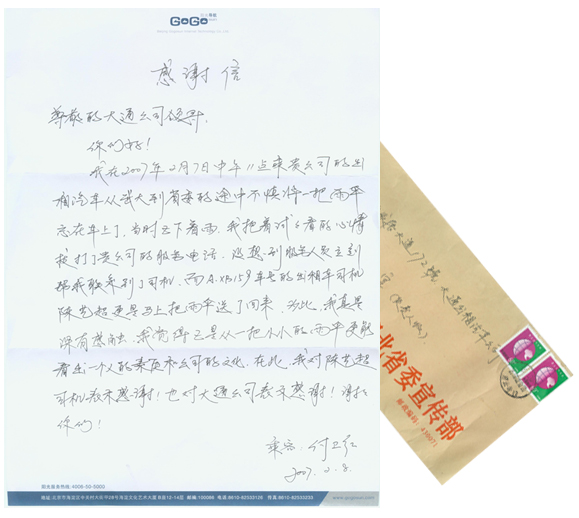 GoGo
感谢信
尊敬的大通公司领导,
你们好!
我在2007年2月7日中午11点乘贵公司的出
租汽车从武大到省委的途中不慎将一把雨伞
忘在车上了,当时天下着雨,我抱着试试看的心情
拨打了贵公司的服务电话,没想到服务人员立刻
帮我联系到了司机,而A·XB159车号的出租车司机
陈艺超更是马上把雨伞送了回来,为此,我真是
深有感触,我觉得已是从一把小小的雨伞更能
看出一个人的素质和公司的文化,在此,我对陈艺超
司机表示感谢!也对大通公司表示感谢!谢谢
你们!
乘客:付卫红
2007. 2. 8.
阳光服务热线:4006-50-5000
大通出租汽车公司
北省委宣传部
邮政编码:430071